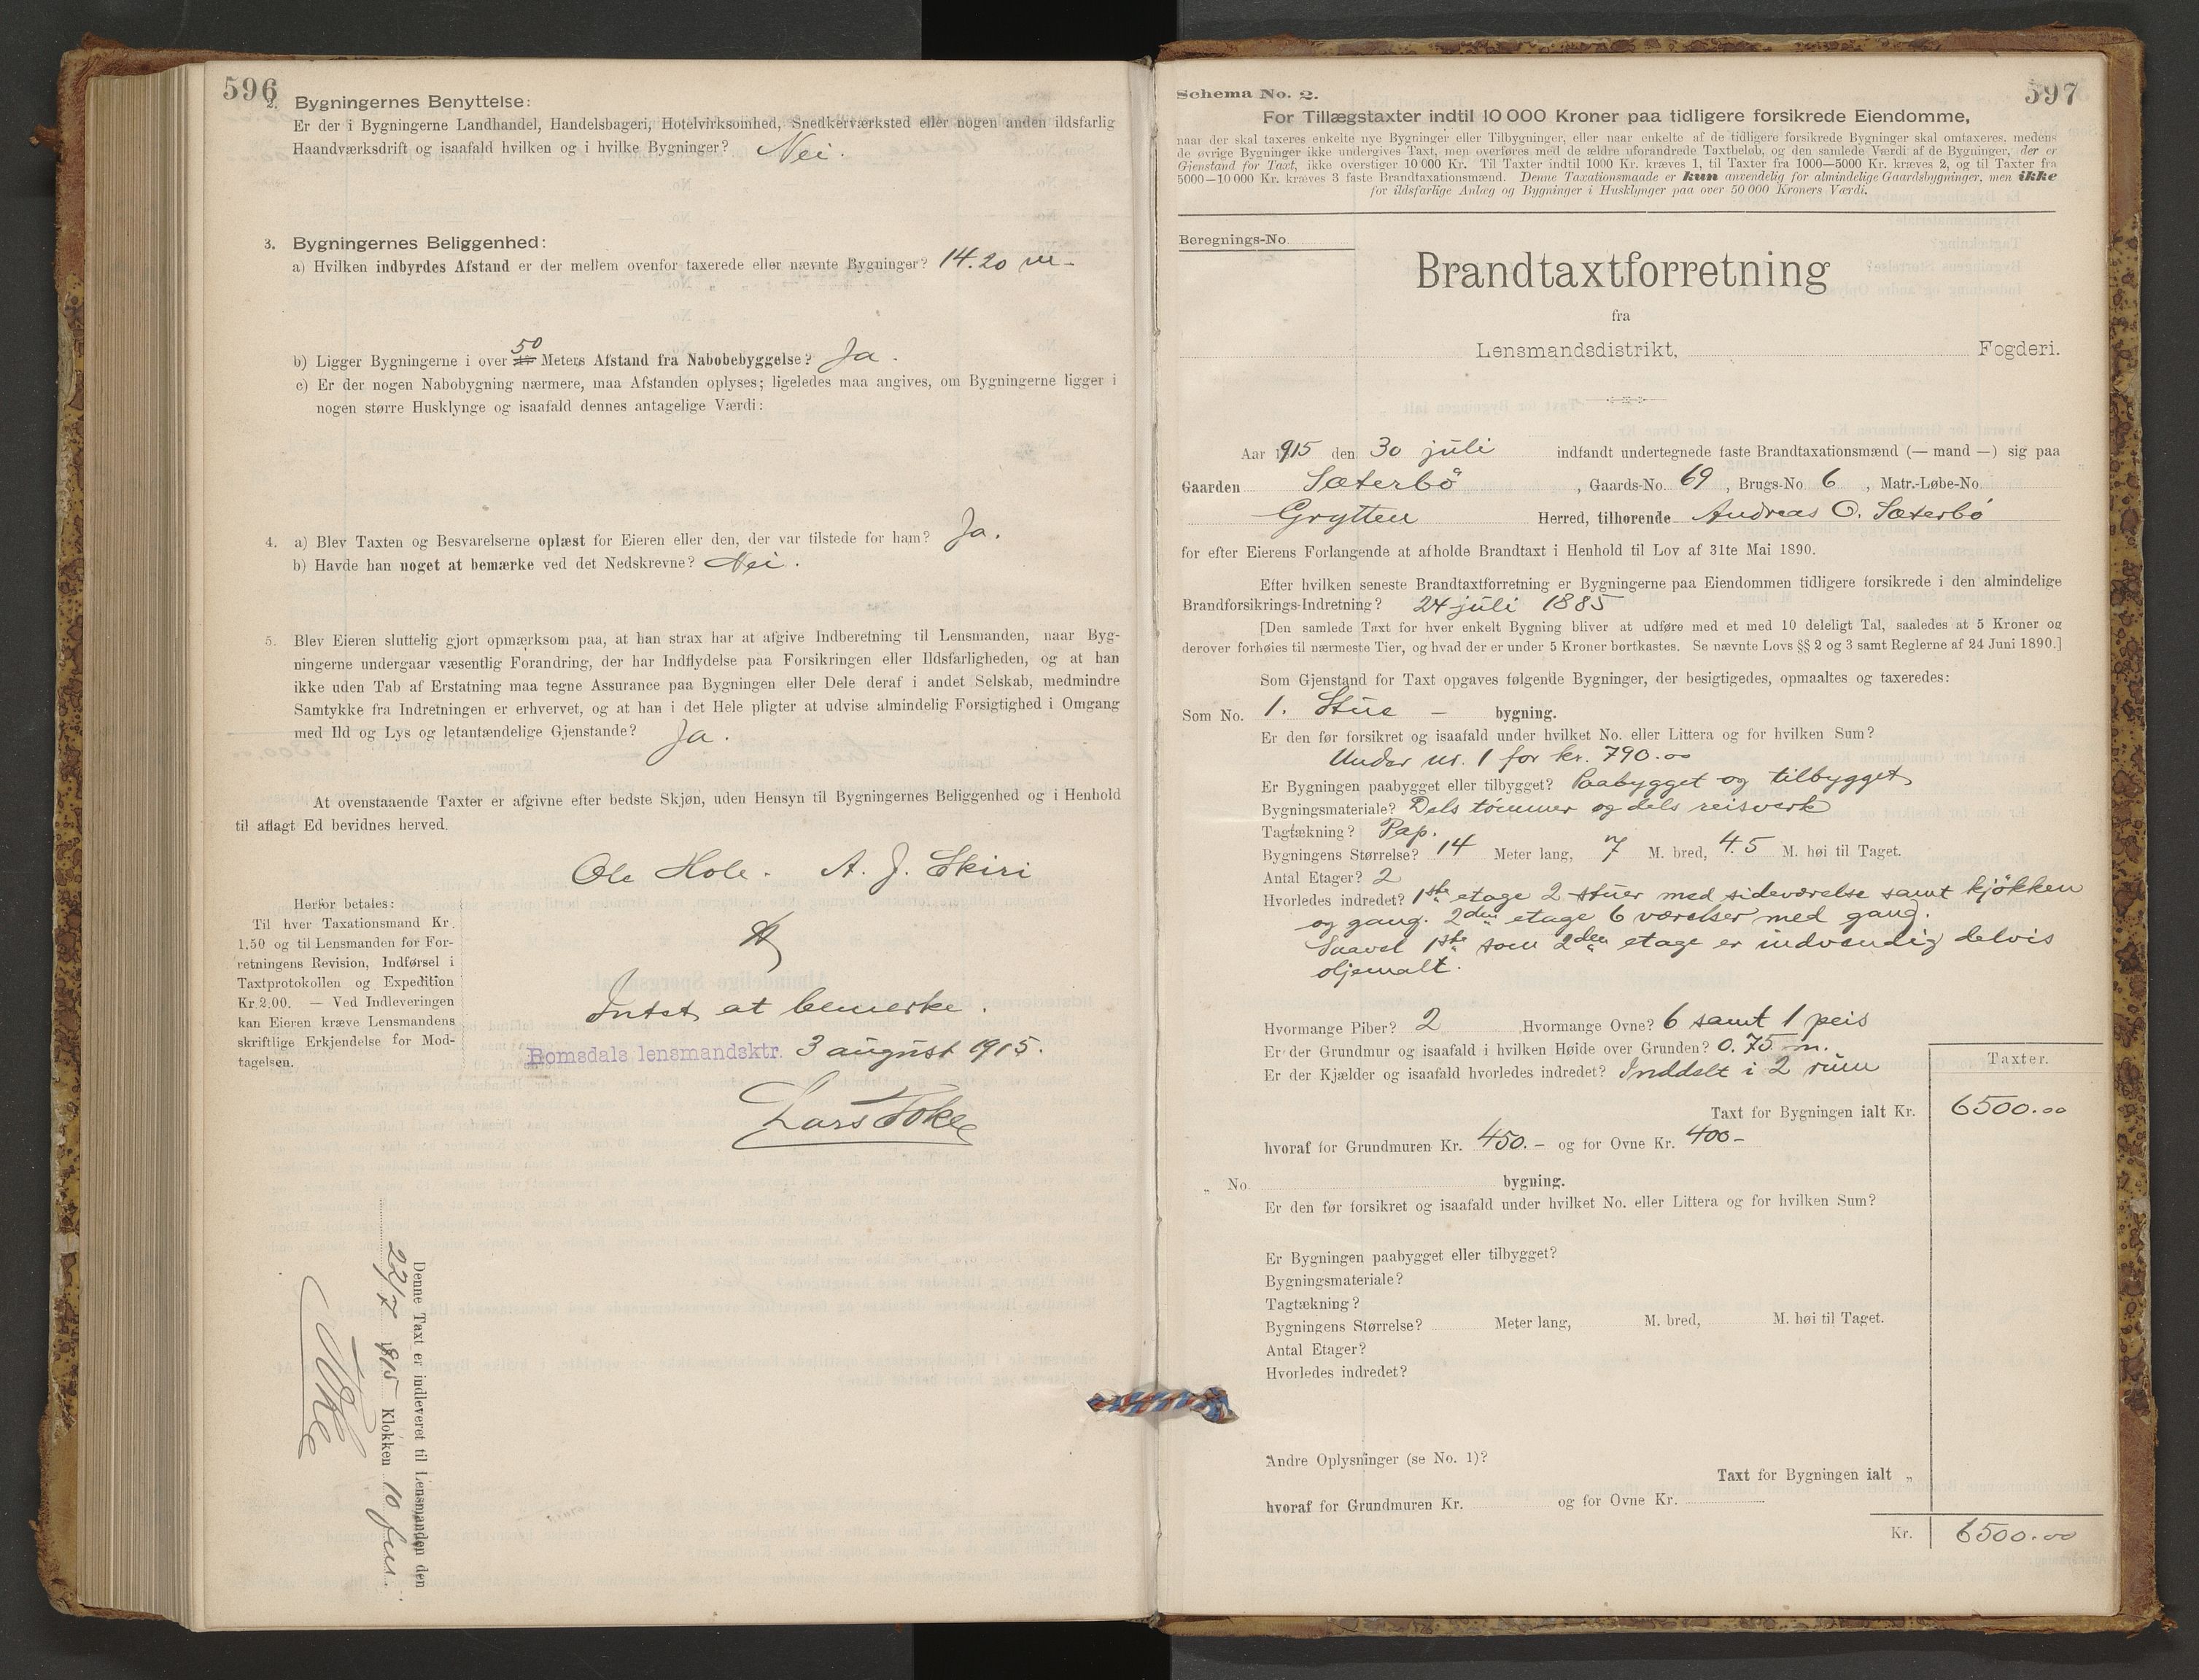 596
2. Bygningernes Benyttelse:
Er der i Bygningerne Landhandel, Handelsbageri, Hotelvirksomhed, Snedkerværksted eller nogen anden ildsfarlig
Haandværksdrift og isaafald hvilken og i hvilke Bygninger? Nei.
3. Bygningernes Beliggenhed:
a) Hvilken indbyrdes Afstand er der mellem ovenfor taxerede eller nævnte Bygninger? 14.20 m-
b) Ligger Bygningerne i over 50 Meters Afstand fra Nabobebyggelse? Ja.
c) Er der nogen Nabobygning nærmere, maa Afstanden oplyses; ligeledes maa angives, om Bygningerne ligger i
nogen større Husklynge og isaafald dennes antagelige Værdi:
4. a) Blev Taxten og Besvarelserne oplæst for Eieren eller den, der var tilstede for ham? Ja.
b) Havde han noget at bemærke ved det Nedskrevne? Nei.
5. Blev Eieren sluttelig gjort opmærksom paa, at han strax har at afgive Indberetning til Lensmanden, naar Byg-
ningerne undergaar væsentlig Forandring, der har Indflydelse paa Forsikringen eller Ildsfarligheden, og at han
ikke uden Tab af Erstatning maa tegne Assurance paa Bygningen eller Dele deraf i andet Selskab, medmindre
Samtykke fra Indretningen er erhvervet, og at han i det Hele pligter at udvise almindelig Forsigtighed i Omgang
med Ild og Lys og letantændelige Gjenstande? Ja.
At ovenstaaende Taxter er afgivne efter bedste Skjøn, uden Hensyn til Bygningernes Beliggenhed og i Henhold
til aflagt Ed bevidnes herved.
Ole Hole. A. J. Skiri
Herfor betales:
Til hver Taxationsmand Kr.
1.50 og til Lensmanden for For-
retningens Revision, Indførsel i
Taxtprotokollen og Expedition
Kr. 2.00. — Ved Indleveringen
kan Eieren kræve Lensmandens
skriftlige Erkjendelse for Mod-
tagelsen.
Intet at bemerke.
Romsdals lensmandsktr. 3 august 1915.
Lars Toke
Denne Taxt er indleveret til Lensmanden den
22/7 1915 Klokken 10 fm.
Toke
597
Schema No. 2.
For Tillægstaxter indtil 10 000 Kroner paa tidligere forsikrede Eiendomme,
naar der skal taxeres enkelte nye Bygninger eller Tilbygninger, eller naar enkelte af de tidligere forsikrede Bygninger skal omtaxeres, medens
de øvrige Bygninger ikke undergives Taxt, men overføres med de ældre uforandrede Taxtbeløb, og den samlede Værdi af de Bygninger, der er
Gjenstand for Taxt, ikke overstiger 10 000 Kr. Til Taxter indtil 1000 Kr. kræves 1, til Taxter fra 1000—5000 Kr. kræves 2, og til Taxter fra
5000—10 000 Kr. kræves 3 faste Brandtaxationsmænd. Denne Taxationsmaade er kun anvendelig for almindelige Gaardsbygninger, men ikke
for ildsfarlige Anlæg og Bygninger i Husklynger paa over 50 000 Kroners Værdi.
Beregnings-No.
Brandtaxtforretning
fra
Lensmandsdistrikt, Fogderi.
Aar 1915 den 30 juli indfandt undertegnede faste Brandtaxationsmænd (— mand —) sig paa
Gaarden Sæterbö, Gaards-No. 69, Brugs-No 6, Matr.-Løbe-No
Grytten Herred, tilhørende Andreas O. Sæterbö
for efter Eierens Forlangende at afholde Brandtaxt i Henhold til Lov af 31te Mai 1890.
Efter hvilken seneste Brandtaxtforretning er Bygningerne paa Eiendommen tidligere forsikrede i den almindelige
Brandforsikrings-Indretning? 24 juli 1885
[Den samlede Taxt for hver enkelt Bygning bliver at udføre med et med 10 deleligt Tal, saaledes at 5 Kroner og
derover forhøies til nærmeste Tier, og hvad der er under 5 Kroner bortkastes. Se nævnte Lovs §§ 2 og 3 samt Reglerne af 24 Juni 1890.]
Som Gjenstand for Taxt opgaves følgende Bygninger, der besigtigedes, opmaaltes og taxeredes:
Som No. 1. Stue – bygning.
Er den før forsikret og isaafald under hvilket No. eller Littera og for hvilken Sum?
Under nr. 1 for kr. 790.00
Er Bygningen paabygget eller tilbygget? Paabygget og tilbygget
Bygningsmateriale? Dels tömmer og dels reisverk
Tagtækning? Pap.
Bygningens Størrelse? 14 Meter lang, 7 M. bred, 4.5 M. høi til Taget.
Antal Etager? 2
Hvorledes indredet? 1ste etage 2 stuer med sideværelse samt kjökken
og gang. 2den etage 6 værelser med gang.
Saavel 1ste som 2den etage er indvendig delvis
oljemalt.
Hvormange Piber? 2 Hvormange Ovne? 6 samt 1 peis
Er der Grundmur og isaafald i hvilken Høide over Grunden? 0.75 m.
Er der Kjælder og isaafald hvorledes indredet? Inddelt i 2 rum
Taxter.
Taxt for Bygningen ialt Kr. 6500.00
hvoraf for Grundmuren Kr. 450.- og for Ovne Kr. 400-
„ No. bygning.
Er den før forsikret og isaafald under hvilket No. eller Littera og for hvilken Sum?
Er Bygningen paabygget eller tilbygget?
Bygningsmateriale?
Tagtækning?
Bygningens Størrelse? Meter lang, M. bred, M. høi til Taget.
Antal Etager?
Hvorledes indredet?
Andre Oplysninger (se No. 1)?
Taxt for Bygningen ialt „
hvoraf for Grundmuren Kr. og for Ovne Kr.
Kr. 6500.00